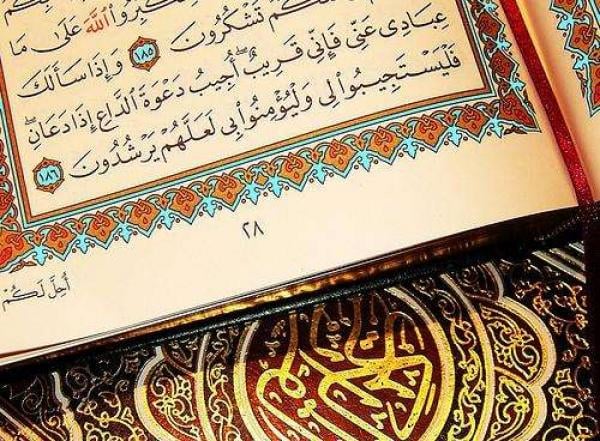 كم تشكرون ١٨٥ وإذا سألك
الله على ما
عِبَادِى عَنِّى فَإِنِّى قَرِيبٌ أُجِيبُ دَعْوَةَ ٱلدَّاعِ إِذَا دَعَانِ
فَلْيَسْتَجِيبُوا۟ لِى وَلْيُؤْمِنُوا۟ بِى لَعَلَّهُمْ يَرْشُدُونَ ١٨٦
٢٨
أُحِلَّ لَكُمْ